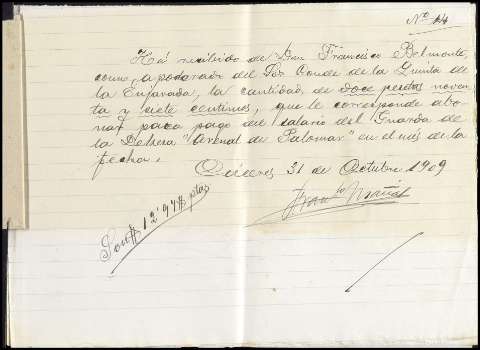 Nº 14
He recibido de Don Francisco Belmonte,
como apoderado del Sor Conde de la Quinta de
la Enjarada, la cantidad de doce pesetas noven
ta y siete centimos, que le corresponde abo
nar para pago del salario del Guarda de
la Dehesa "Arenal de Palomar" en el mes de la
fecha.
Cáceres 31 de Octubre 1909
Son # 12'97 # ptas